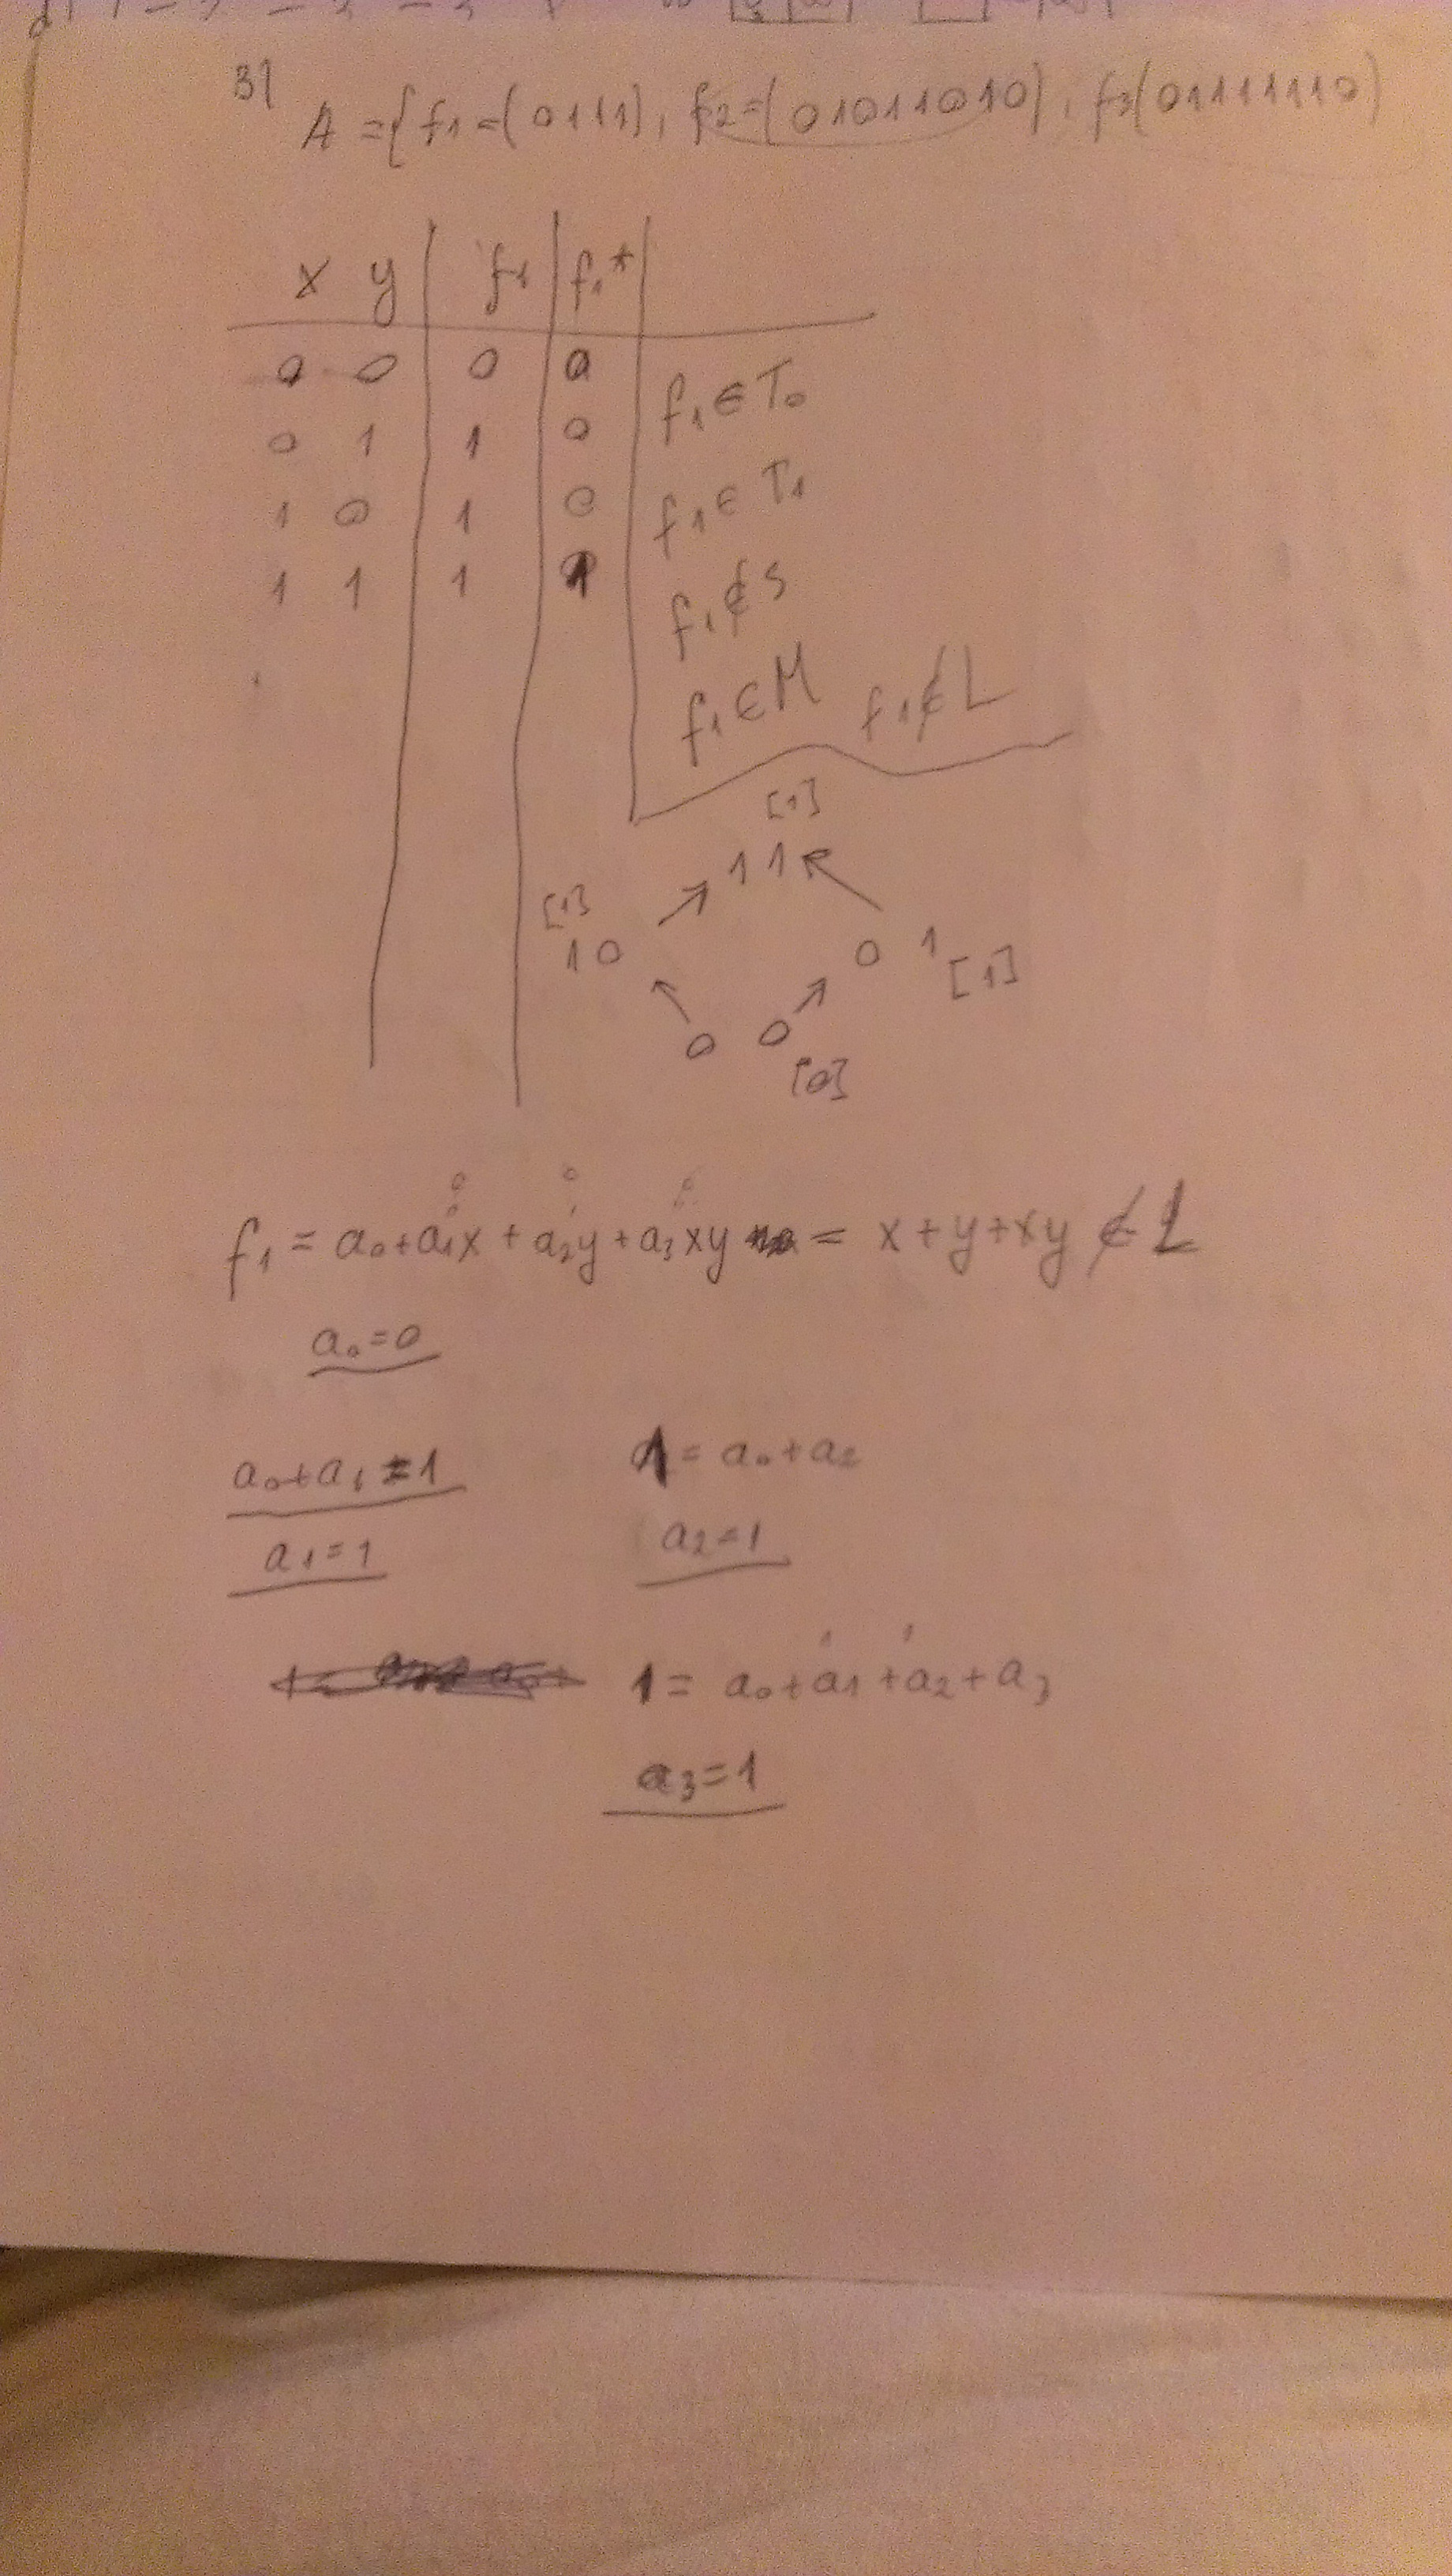 3)
A = { f1 = (0111), f2 = (01011010), f3 (01111110)
x y f1 f1*
0 0 0 0 f1 ∈ T0
0 1 1 0
1 0 1 0 f1 ∈ T1
1 1 1 1 f1 ∉ S
f1 ∈ M f1 ∉ L
[1]
1 1
[1]
1 0 0 1 [1]
0 0
[0]
f1 = a0 + a1x + a2y + a3xy = x + y + xy ∉ L
a0 = 0
a0 + a1 = 1 1 = a0 + a2
a1 = 1 a2 = 1
1 = a0 + a1 + a2 + a3
a3 = 1